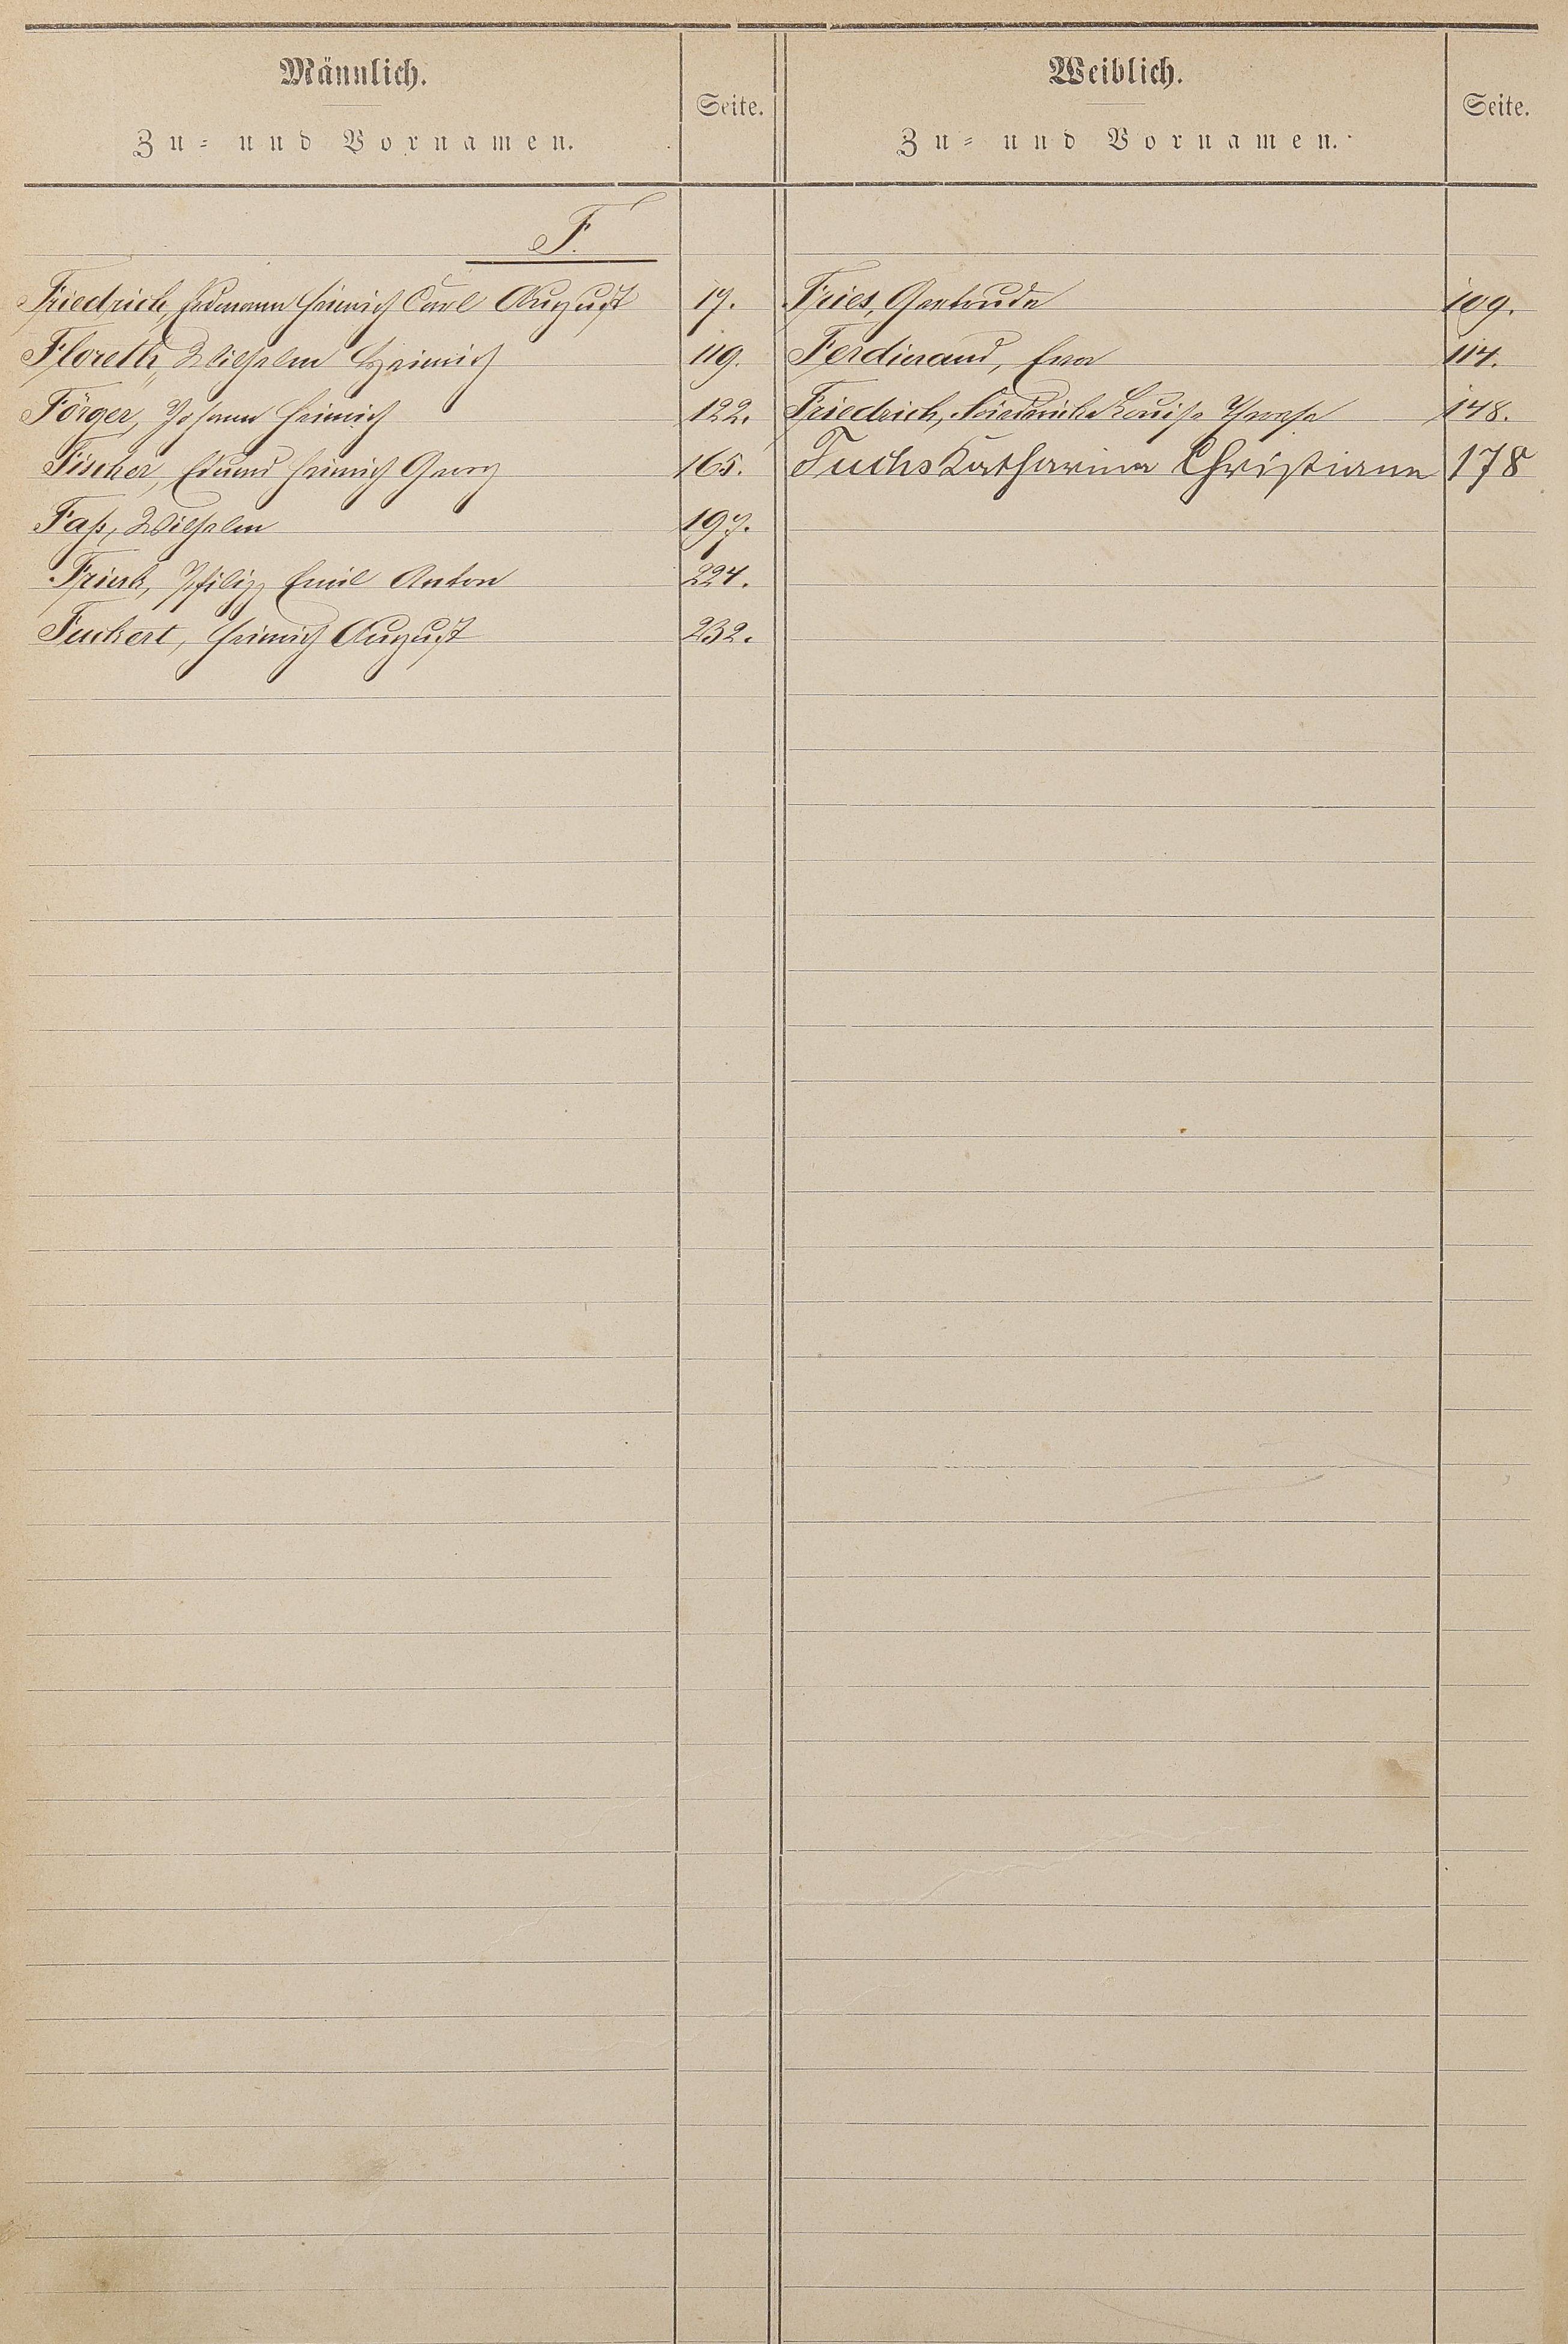 Männlich.
Zu= und Vornamen.
Seite.
Weiblich.
Zu= und Vornamen.
Seite.
F.
Friedrich, Erdmann Heinrich Carl August 17.
Floreth, Wilhelm Heinrich 119.
Förger, Johann Heinrich 122.
Fischer, Eduard Heinrich Georg 165.
Faß, Wilhelm 197.
Frink, Philipp Emil Anton 224.
Fuckert, Heinrich August 232.
Fries, Gertrude 109.
Ferdinand, Eva 114.
Friedrich, Friederike Louise Therese 148.
Fuchs Katharina Christiane 178